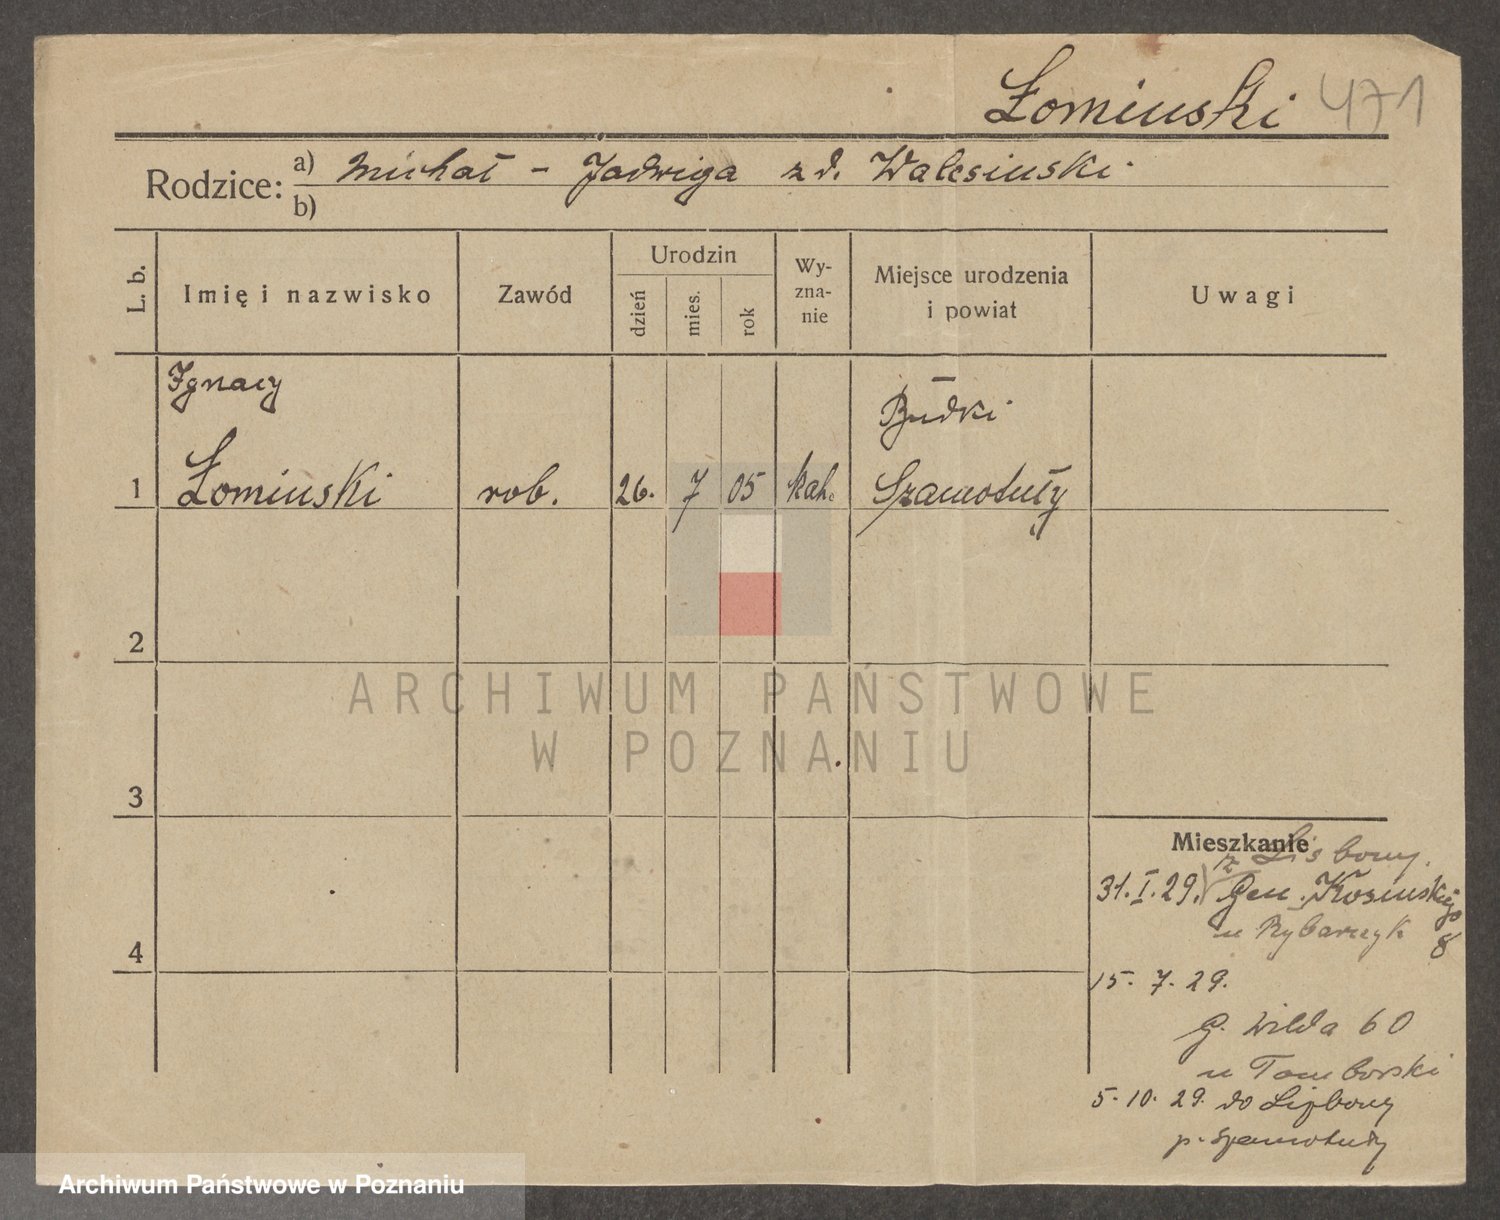 Łomiński 471
Rodzice: a) Michał - Jadwiga z d. Walesiński
b)
L. b.
Imię i nazwisko
Zawód
Urodzin
dzień
mies.
rok
Wy-
zna-
nie
Miejsce urodzenia
i powiat
Uwagi
Ignacy
Budki
1 Łomiński rob. 26. 7 05 kat. Szamotuły
2
ARCHIWUM PAŃSTWOWE
W POZNANIU
3
Mieszkanie
z Lisbony.
31.I.29. Gen. Kosińskiego 8
u Rybarczyk
4
15. 7. 29.
G. Wilda 60
u Tomborski
5. 10. 29. do Lizbony
p. Szamotuły
Archiwum Państwowe w Poznaniu